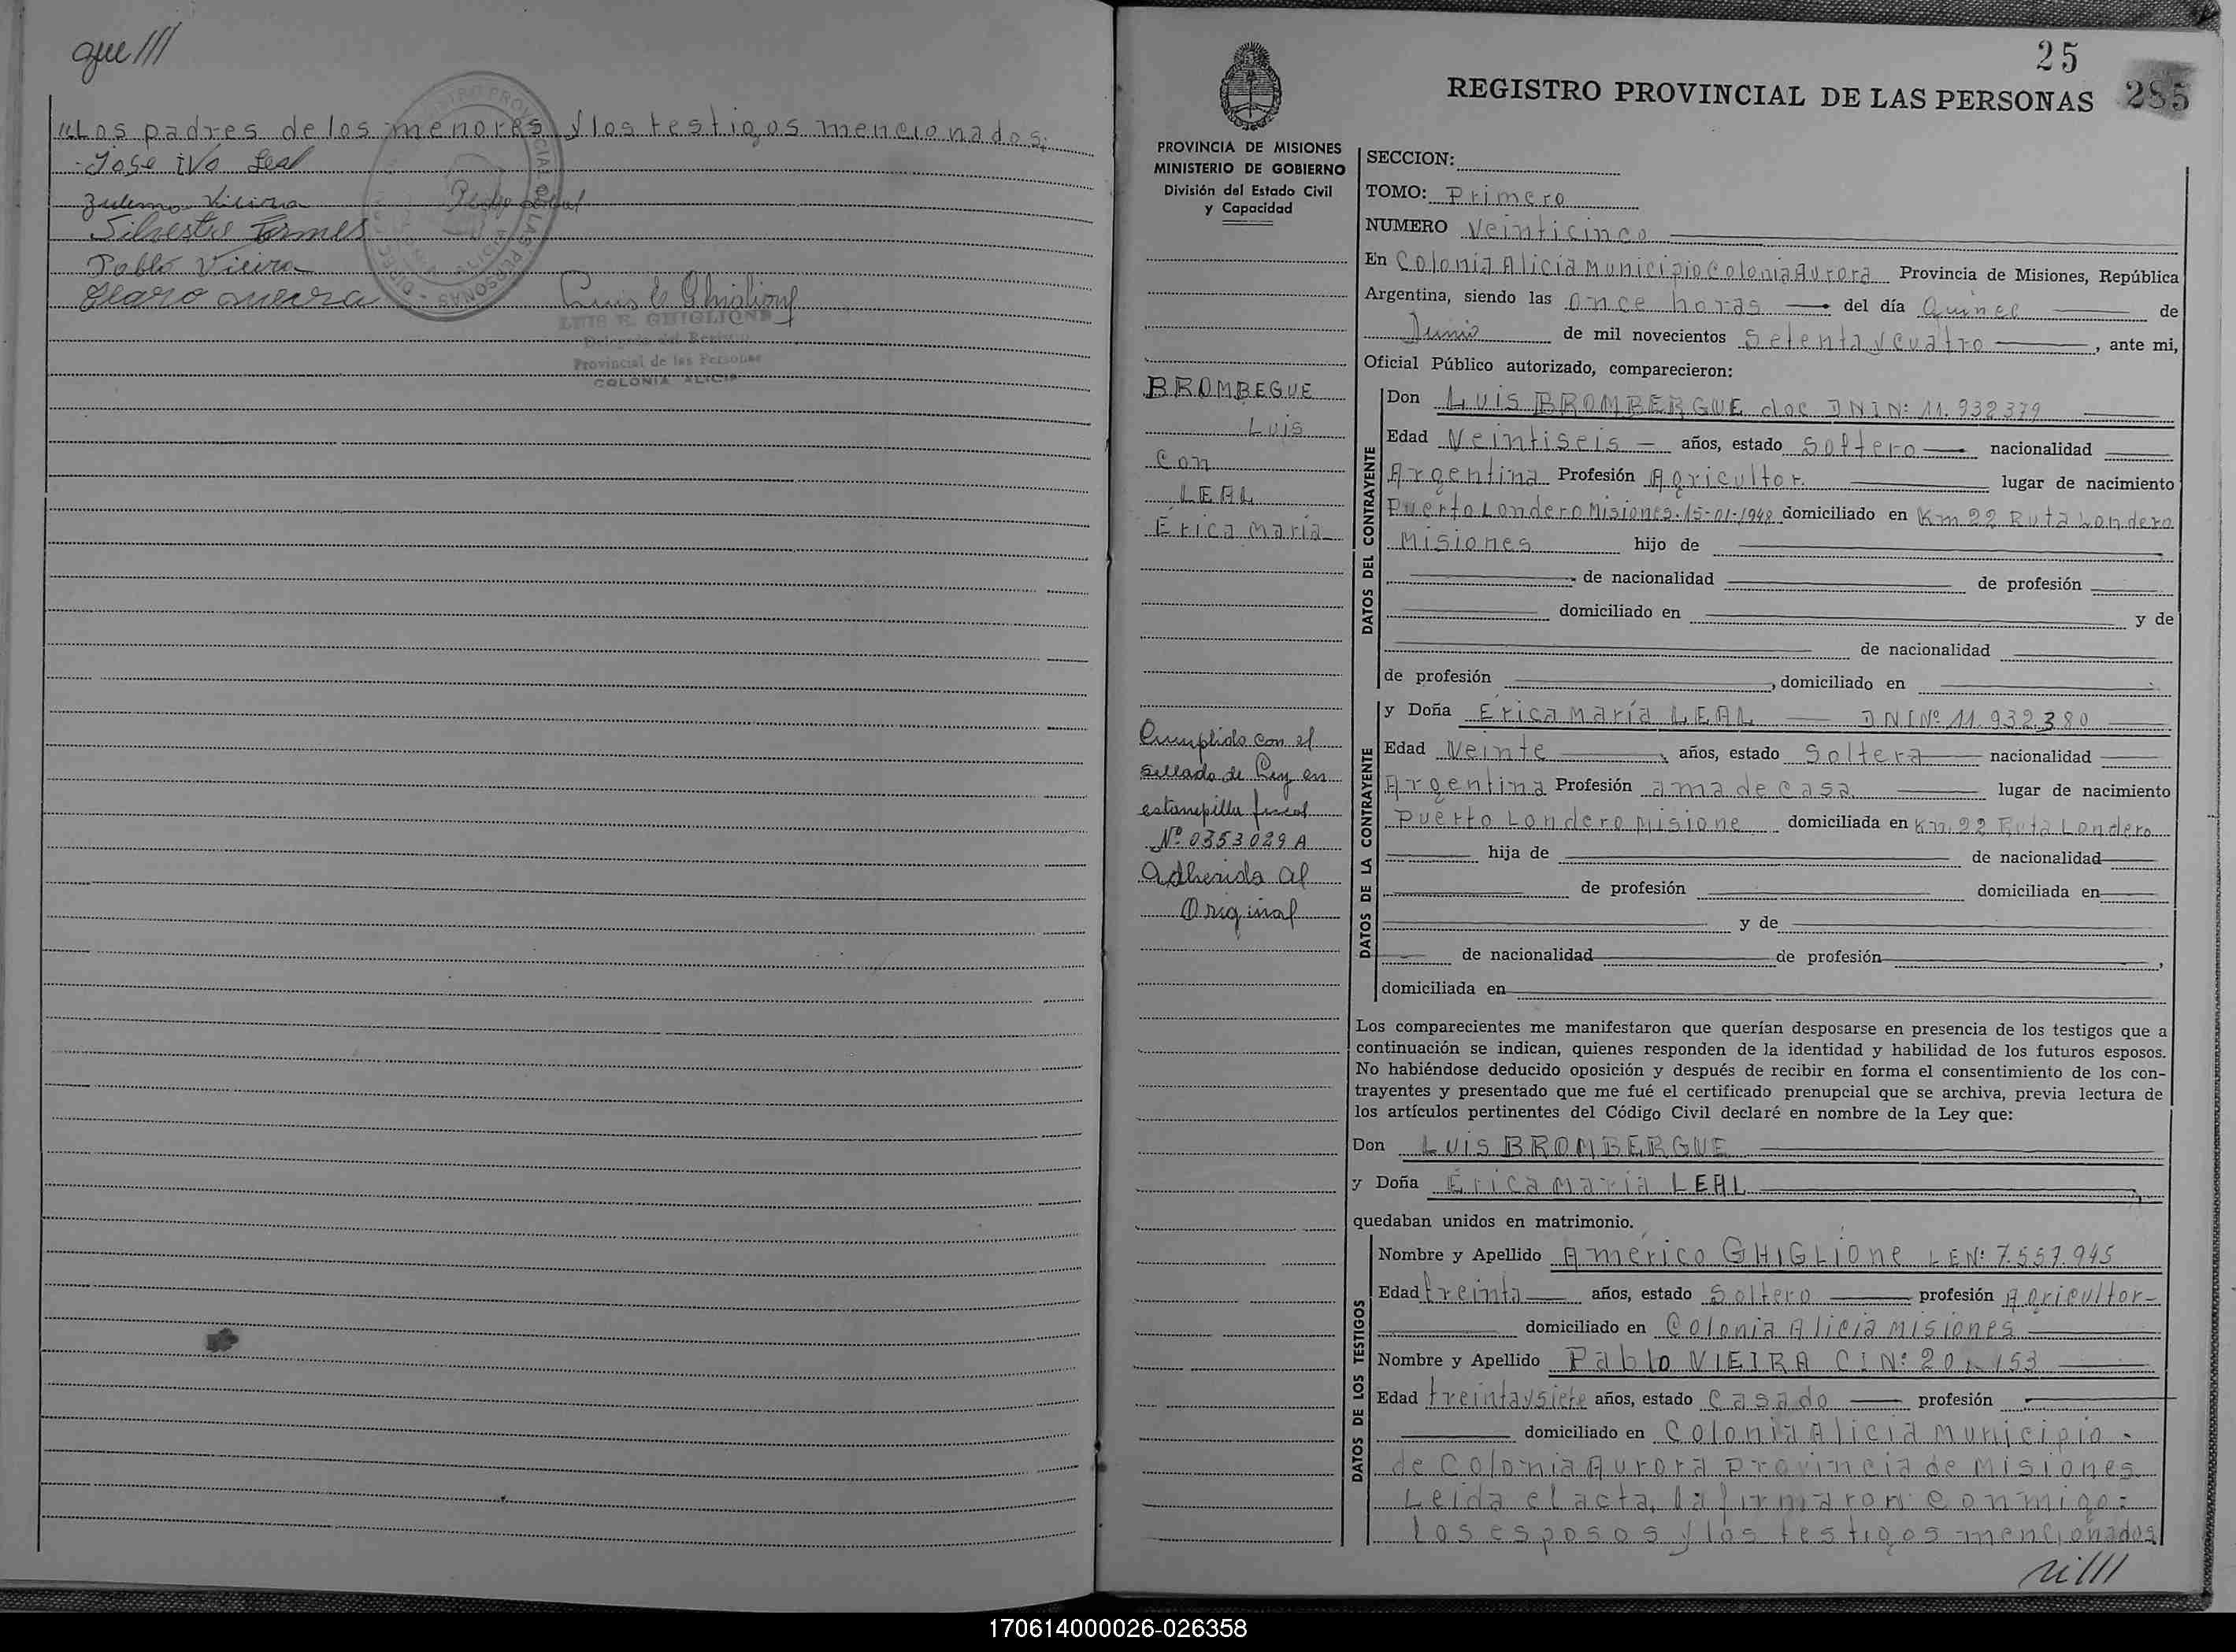 que///
///Los padres de los menores y los testigos mencionados:
-Jose ivo Leal
Zulema Vieira
Silvestre
Pablo Vieira
Luis E Ghiglione
LUIS E. GHIGLIONE
Delegado del Registro
Provincial de las Personas
COLONIA ALICIA
25
REGISTRO PROVINCIAL DE LAS PERSONAS 285
PROVINCIA DE MISIONES
MINISTERIO DE GOBIERNO
División del Estado Civil
y Capacidad
BROMBEGUE
Luis
Con
LEAL
Érica María
Cumplido con el
sellado de Ley en
estampilla fiscal
Nº 0353029 A
Adherida al
Original
SECCION:
TOMO: Primero
NUMERO Veinticinco
En Colonia Alicia Municipio Colonia Aurora Provincia de Misiones, República
Argentina, siendo las once horas del día Quince de
Junio de mil novecientos Setenta y Cuatro, ante mi,
Oficial Público autorizado, comparecieron:
DATOS DEL CONTRAYENTE
Don LUIS BROMBERGUE doc DNI N: 11.932379
Edad Veintiseis años, estado Soltero nacionalidad
Argentina Profesión Agricultor lugar de nacimiento
Puerto Londero Misiones.15-01-1948 domiciliado en Km 22 Ruta Londero
Misiones hijo de
de nacionalidad de profesión
domiciliado en y de
de nacionalidad
de profesión , domiciliado en
DATOS DE LA CONTRAYENTE
y Doña Erica María LEAL DNI Nº 11.932.380
Edad Veinte años, estado Soltera nacionalidad
Argentina Profesión ama de casa lugar de nacimiento
Puerto Londero Misione domiciliada en Km.22 Ruta Londero
hija de de nacionalidad
de profesión domiciliada en
y de
de nacionalidad de profesión ,
domiciliada en
Los comparecientes me manifestaron que querían desposarse en presencia de los testigos que a
continuación se indican, quienes responden de la identidad y habilidad de los futuros esposos.
No habiéndose deducido oposición y después de recibir en forma el consentimiento de los con-
trayentes y presentado que me fué el certificado prenupcial que se archiva, previa lectura de
los artículos pertinentes del Código Civil declaré en nombre de la Ley que:
Don LUIS BROMBERGUE
y Doña Érica María LEAL
quedaban unidos en matrimonio.
DATOS DE LOS TESTIGOS
Nombre y Apellido Américo GHIGLIONE LEN: 7.557.945
Edad treinta años, estado Soltero profesión Agricultor-
domiciliado en Colonia Alicia Misiones
Nombre y Apellido Pablo VIEIRA CI Nº
Edad treintaysiete años, estado Casado profesión
domiciliado en Colonia Alicia Municipio -
de Colonia Aurora Provincia de Misiones
Leida el acta, la firmaron conmigo:
los esposos y los testigos mencionados
170614000026-026358